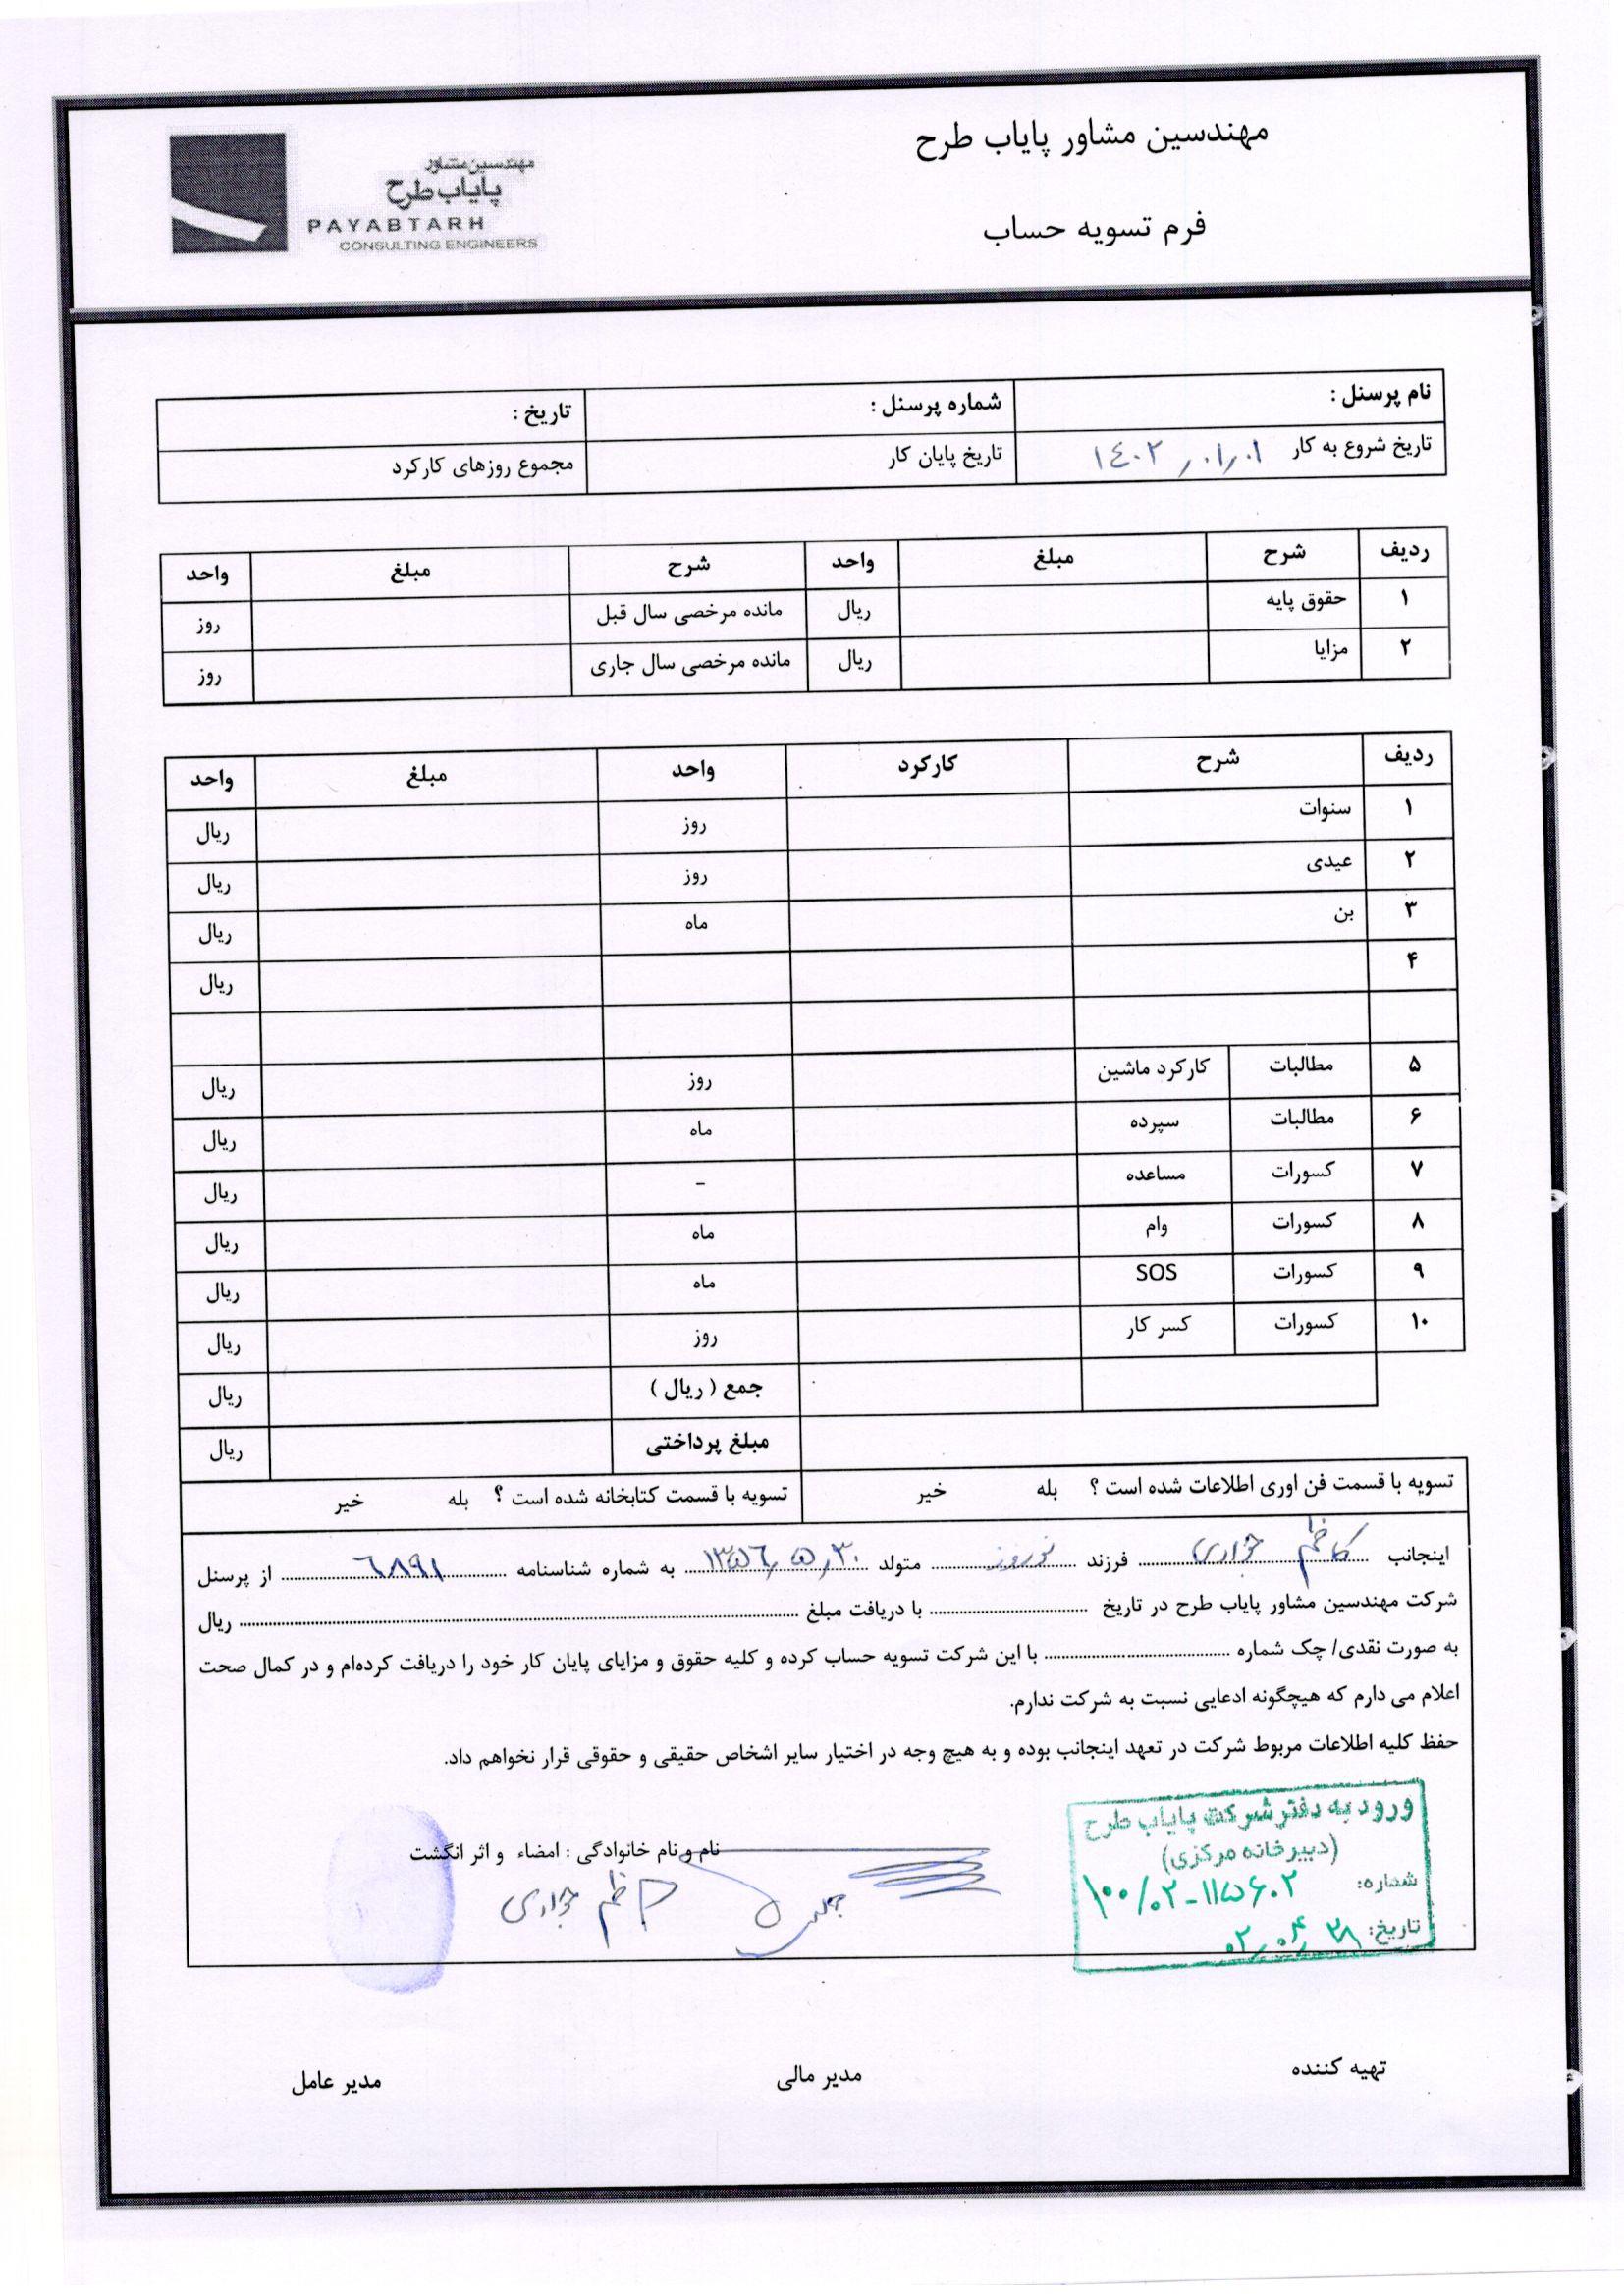 مهندسین مشاور پایاب طرح
مهندسین مشاور
پایاب طرح
PAYABTARH
CONSULTING ENGINEERS
فرم تسویه حساب
نام پرسنل : شماره پرسنل : تاریخ :
تاریخ شروع به کار ۱۴۰۲٫۰۱٫۰۱ تاریخ پایان کار مجموع روزهای کارکرد
ردیف شرح مبلغ واحد شرح مبلغ واحد
۱ حقوق پایه ریال مانده مرخصی سال قبل روز
۲ مزایا ریال مانده مرخصی سال جاری روز
ردیف شرح کارکرد واحد مبلغ واحد
۱ سنوات روز ریال
۲ عیدی روز ریال
۳ بن ماه ریال
۴ ریال
۵ مطالبات کارکرد ماشین روز ریال
۶ مطالبات سپرده ماه ریال
۷ کسورات مساعده – ریال
۸ کسورات وام ماه ریال
۹ کسورات SOS ماه ریال
۱۰ کسورات کسر کار روز ریال
جمع ( ریال ) ریال
مبلغ پرداختی ریال
تسویه با قسمت فن اوری اطلاعات شده است ؟ بله خیر تسویه با قسمت کتابخانه شده است ؟ بله خیر
اینجانب کاظم جواری فرزند نوروز متولد ۱۳۵۶٫۵٫۳۰ به شماره شناسنامه ۶۸۹۱ از پرسنل
شرکت مهندسین مشاور پایاب طرح در تاریخ .................... با دریافت مبلغ .................... ریال
به صورت نقدی/ چک شماره .................... با این شرکت تسویه حساب کرده و کلیه حقوق و مزایای پایان کار خود را دریافت کرده‌ام و در کمال صحت
اعلام می دارم که هیچگونه ادعایی نسبت به شرکت ندارم.
حفظ کلیه اطلاعات مربوط شرکت در تعهد اینجانب بوده و به هیچ وجه در اختیار سایر اشخاص حقیقی و حقوقی قرار نخواهم داد.
ورود به دفتر شرکت پایاب طرح
(دبیرخانه مرکزی)
شماره: ۱۰۰/۰۲-۱۱۵۶۰۲
تاریخ: ۰۲٫۰۴٫۲۸
نام و نام خانوادگی : امضاء و اثر انگشت
کاظم جواری
تهیه کننده مدیر مالی مدیر عامل